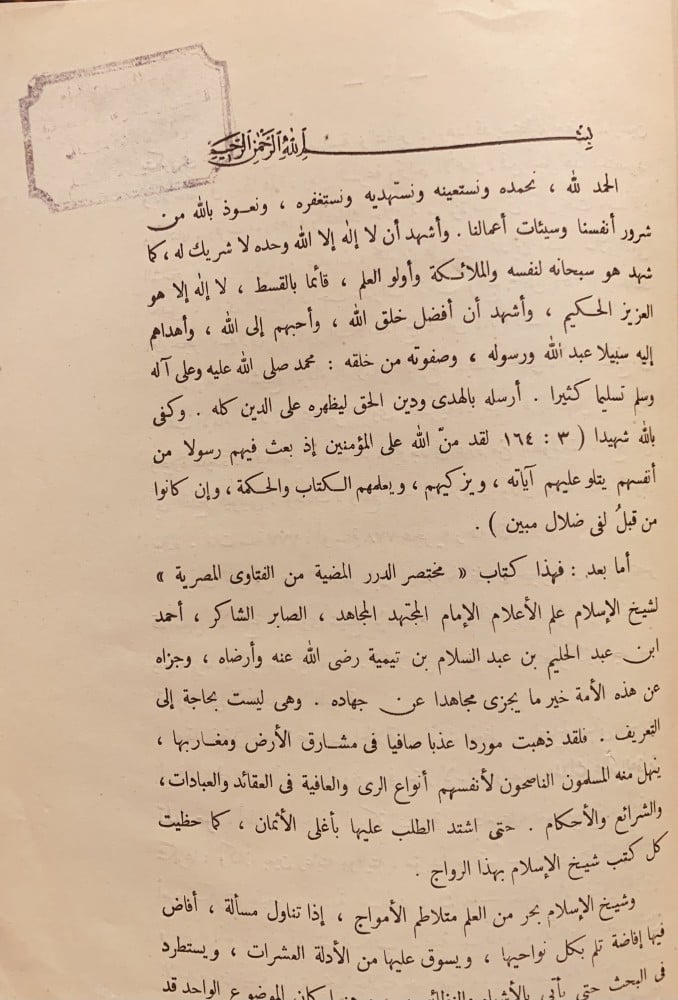 بسم الله الرحمن الرحيم
الحمد لله ، نحمده ونستعينه ونستهديه ونستغفره ، ونعوذ بالله من
شرور أنفسنا وسيئات أعمالنا . وأشهد أن لا إله إلا الله وحده لا شريك له ، كما
شهد هو سبحانه لنفسه والملائكة وأولو العلم ، قائما بالقسط ، لا إله إلا هو
العزيز الحكيم ، وأشهد أن أفضل خلق الله ، وأحبهم إلى الله ، وأهداهم
إليه سبيلا عبد الله ورسوله ، وصفوته من خلقه : محمد صلى الله عليه وعلى آله
وسلم تسليما كثيرا . أرسله بالهدى ودين الحق ليظهره على الدين كله . وكفى
بالله شهيدا ( ٣ : ١٦٤ لقد منّ الله على المؤمنين إذ بعث فيهم رسولا من
أنفسهم يتلو عليهم آياته ، ويزكيهم ، ويعلمهم الكتاب والحكمة ، وإن كانوا
من قبلُ لفى ضلال مبين ) .
أما بعد : فهذا كتاب « مختصر الدرر المضية من الفتاوى المصرية »
لشيخ الإسلام علم الأعلام الإمام المجتهد المجاهد ، الصابر الشاكر ، أحمد
ابن عبد الحليم بن عبد السلام بن تيمية رضى الله عنه وأرضاه ، وجزاه
عن هذه الأمة خير ما يجزى مجاهدا عن جهاده . وهى ليست بحاجة إلى
التعريف . فلقد ذهبت موردا عذبا صافيا فى مشارق الأرض ومغاربها ،
ينهل منه المسلمون الناصحون لأنفسهم أنواع الرى والعافية فى العقائد والعبادات ،
والشرائع والأحكام . حتى اشتد الطلب عليها بأغلى الأثمان ، كما حظيت
كل كتب شيخ الإسلام بهذا الرواج .
وشيخ الإسلام بحر من العلم متلاطم الأمواج ، إذا تناول مسألة ، أفاض
فيها إفاضة تلم بكل نواحيها ، ويسوق عليها من الأدلة العشرات ، ويستطرد
فى البحث حتى يأتى بالأشباه والنظائر كان الموضوع الواحد قد